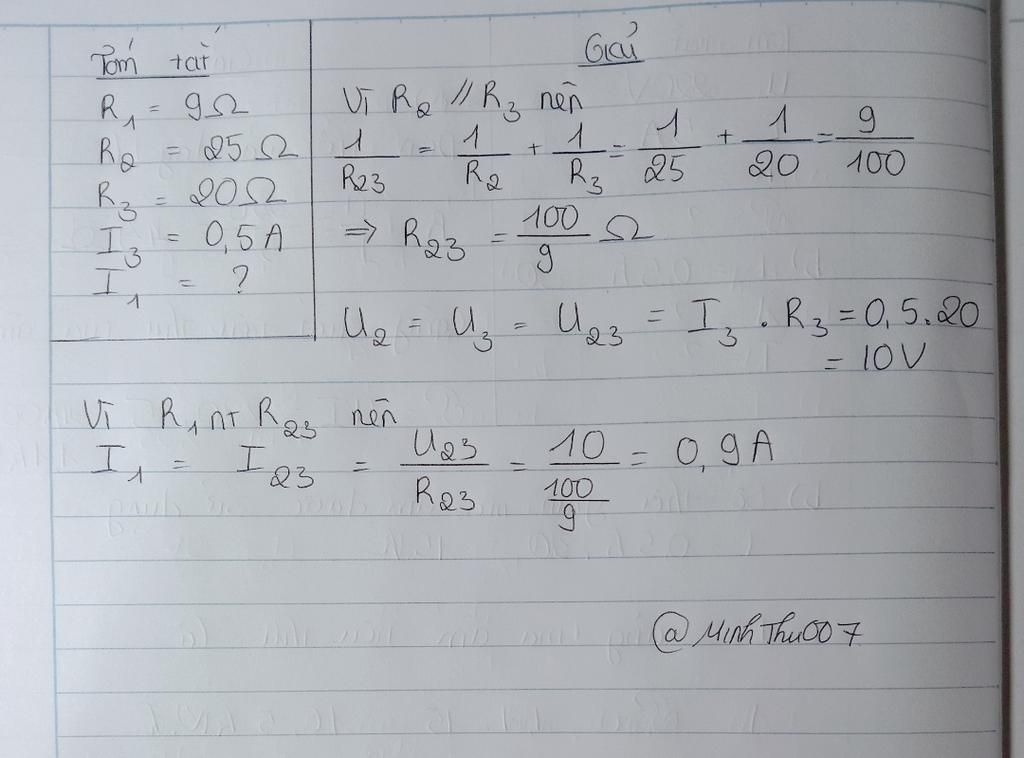 Tóm tắt
R1 = 9Ω
R2 = 25Ω
R3 = 20Ω
I3 = 0,5A
I1 = ?
Giải
Vì R2 // R3 nên
1/R23 = 1/R2 + 1/R3 = 1/25 + 1/20 = 9/100
=> R23 = 100/9 Ω
U2 = U3 = U23 = I3 . R3 = 0,5.20
= 10V
Vì R1 nt R23 nên
I1 = I23 = U23/R23 = 10/(100/9) = 0,9A
@MinhThu007